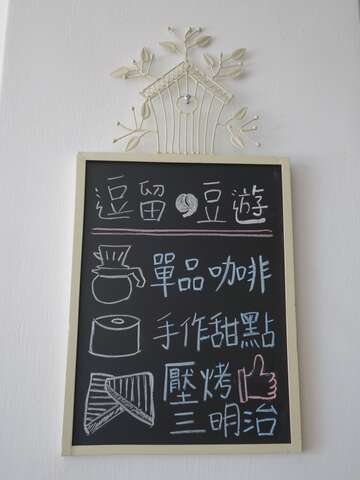 逗留豆遊
單品咖啡
手作甜點
壓烤
三明治